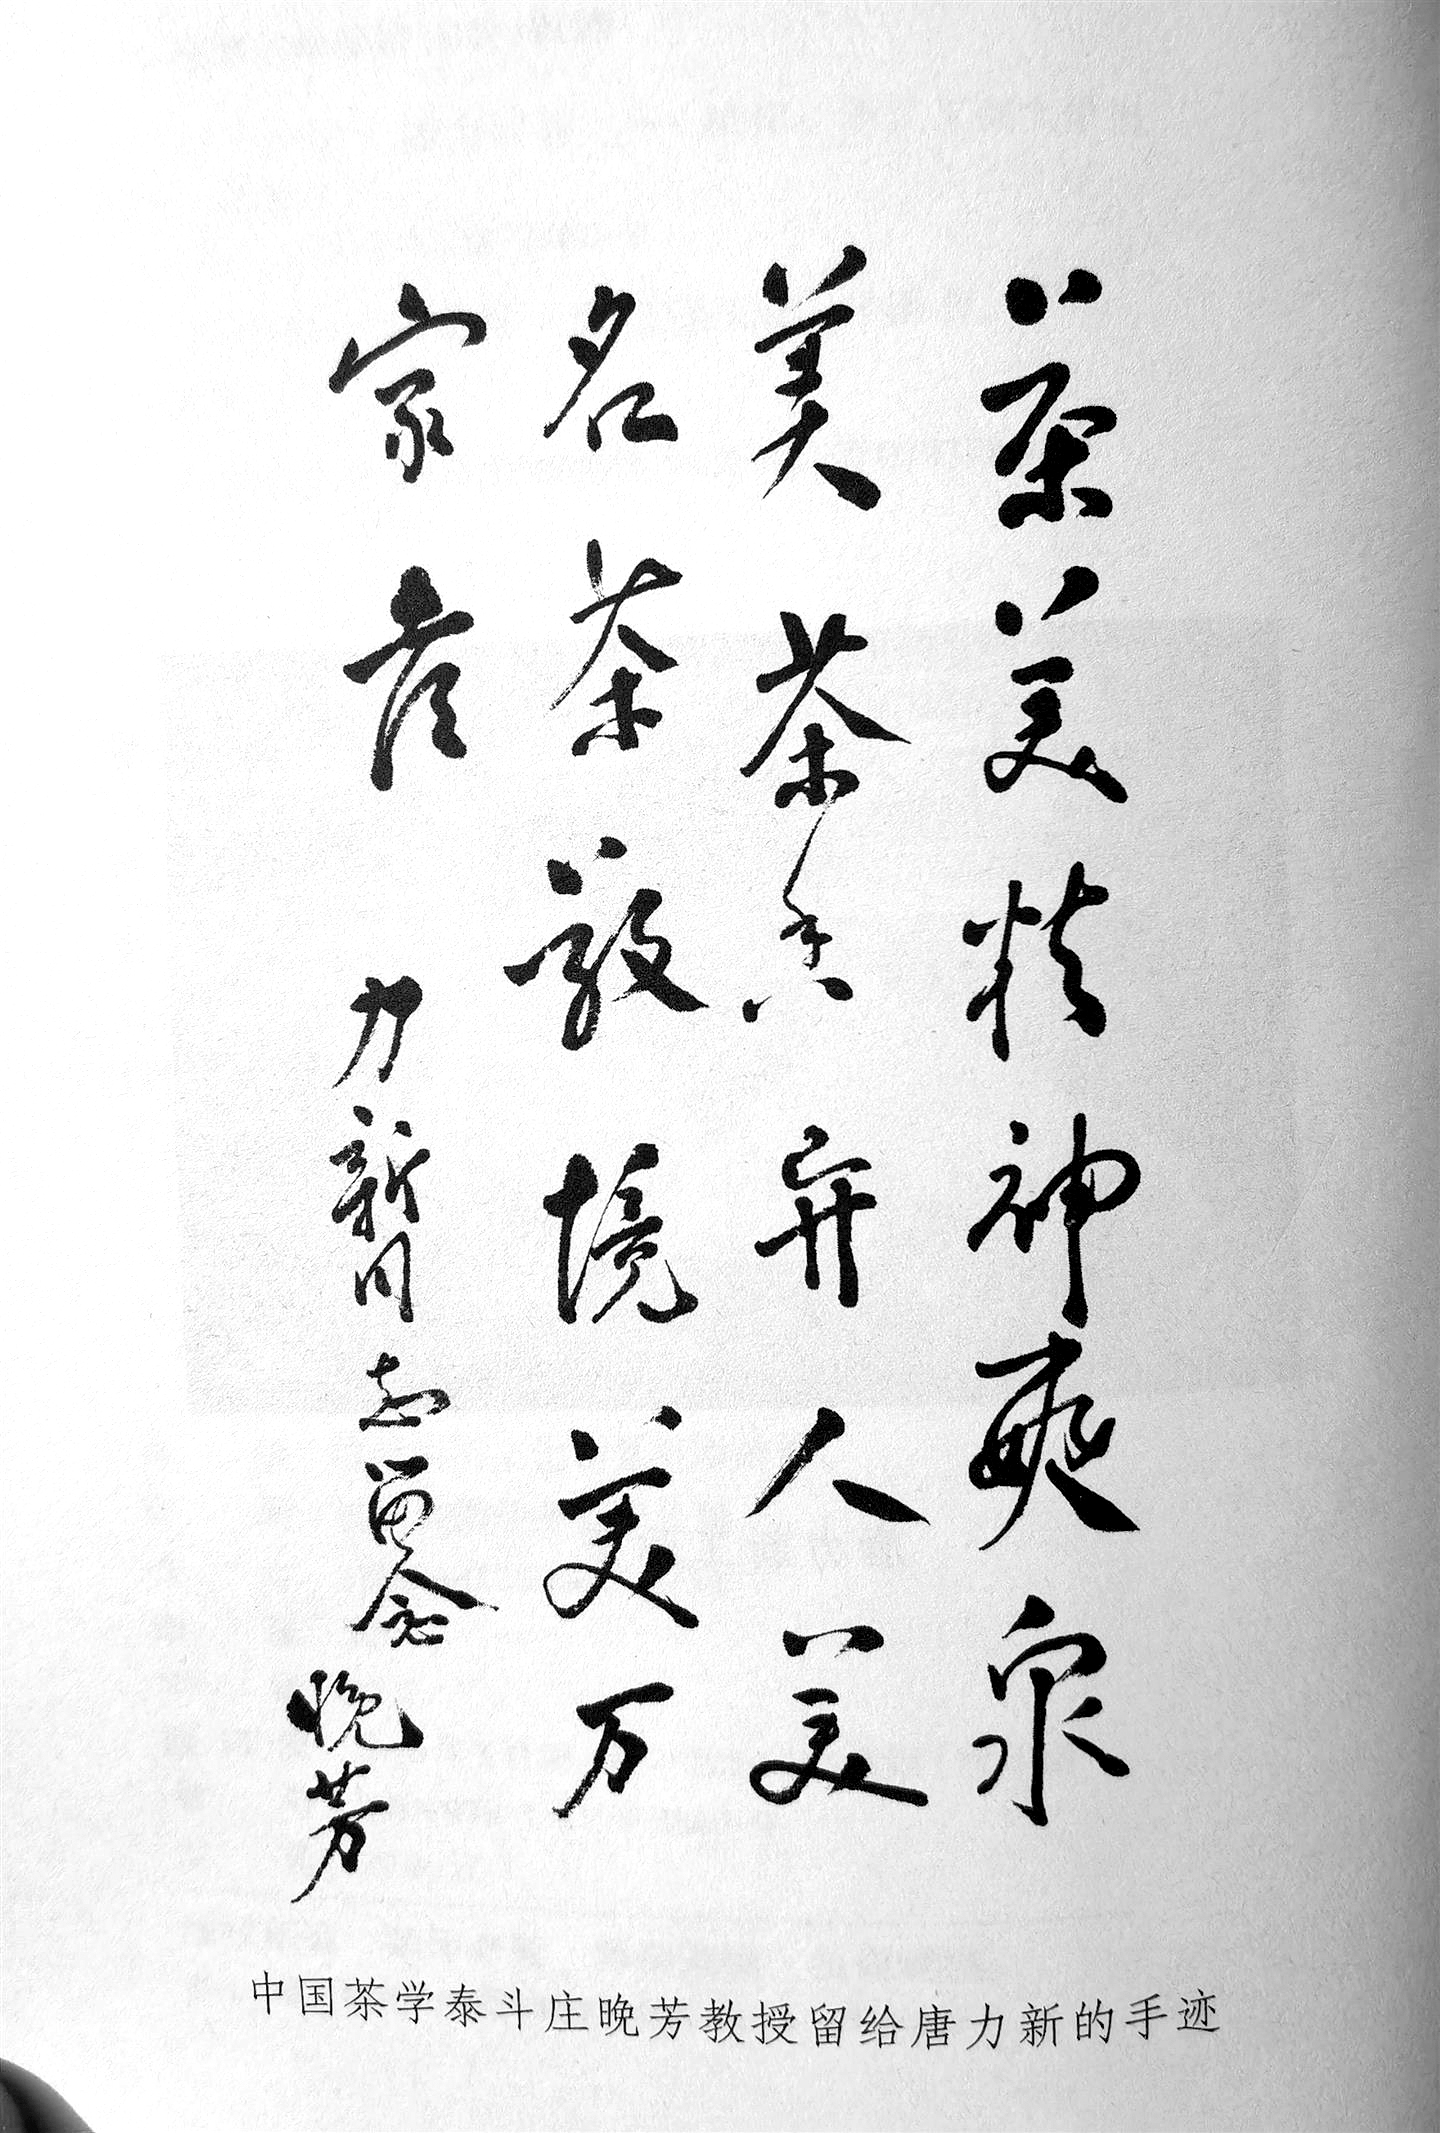 茶美精神爽泉
美茶香异人美
名茶敬境美万
家 力新同志留念 晚芳
中国茶学泰斗庄晚芳教授留给唐力新的手迹